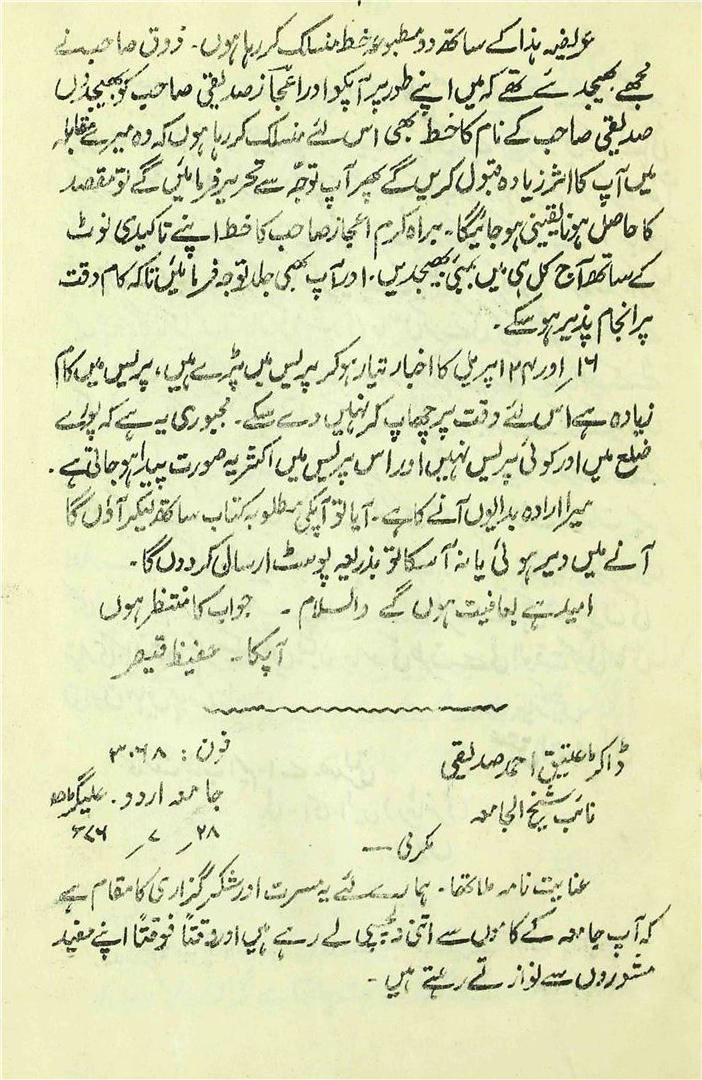 عریضہ ہذا کے ساتھ دو مطبوعہ خط منسلک کر رہا ہوں۔ ذوق صاحب نے
مجھے بھیجدئے تھے کہ میں اپنے طور پر آپکو اور اعجاز صدیقی صاحب کو بھیجدوں
صدیقی صاحب کے نام کا خط بھی اس لئے منسلک کر رہا ہوں کہ وہ میرے مقابلہ
میں آپ کا اثر زیادہ قبول کریں گے پھر آپ توجہ سے تحریر فرمائیں گے تو مقصد
کا حاصل ہونا یقینی ہو جائیگا۔ براہ کرم اعجاز صاحب کا خط اپنے تاکیدی نوٹ
کے ساتھ آج کل ہی میں بمبئی بھیجدیں۔ اور آپ بھی جلد توجہ فرمائیں تاکہ کام وقت
پر انجام پذیر ہو سکے۔
۱۶ اور ۲۴ اپریل کا اخبار تیار ہو کر پریس میں پڑے ہیں، پریس میں کام
زیادہ ہے اس لئے وقت پر چھاپ کر نہیں دے سکے۔ مجبوری یہ ہے کہ پورے
ضلع میں اور کوئی پریس نہیں اور اس پریس میں اکثر یہ صورت پیدا ہو جاتی ہے۔
میرا ارادہ بدایوں آنے کا ہے۔ آیا تو آپکی مطلوبہ کتاب ساتھ لیکر آؤں گا
آنے میں دیر ہوئی یا نہ آ سکا تو بذریعہ پوسٹ ارسال کر دوں گا۔
امید ہے بعافیت ہوں گے والسلام ۔ جواب کا منتظر ہوں
آپکا۔ حفیظ قیصر
ڈاکٹر عتیق احمد صدیقی
فون: ۳۰۶۸
نائب شیخ الجامعہ
جامعہ اردو۔ علیگڑھ
۲۸ ۷ ۷۶ء
مکرمی —
عنایت نامہ ملا تھا۔ ہمارے لئے یہ مسرت اور شکر گزاری کا مقام ہے
کہ آپ جامعہ کے کاموں سے اتنی دلچسپی لے رہے ہیں اور وقتاً فوقتاً اپنے مفید
مشوروں سے نوازتے رہتے ہیں۔